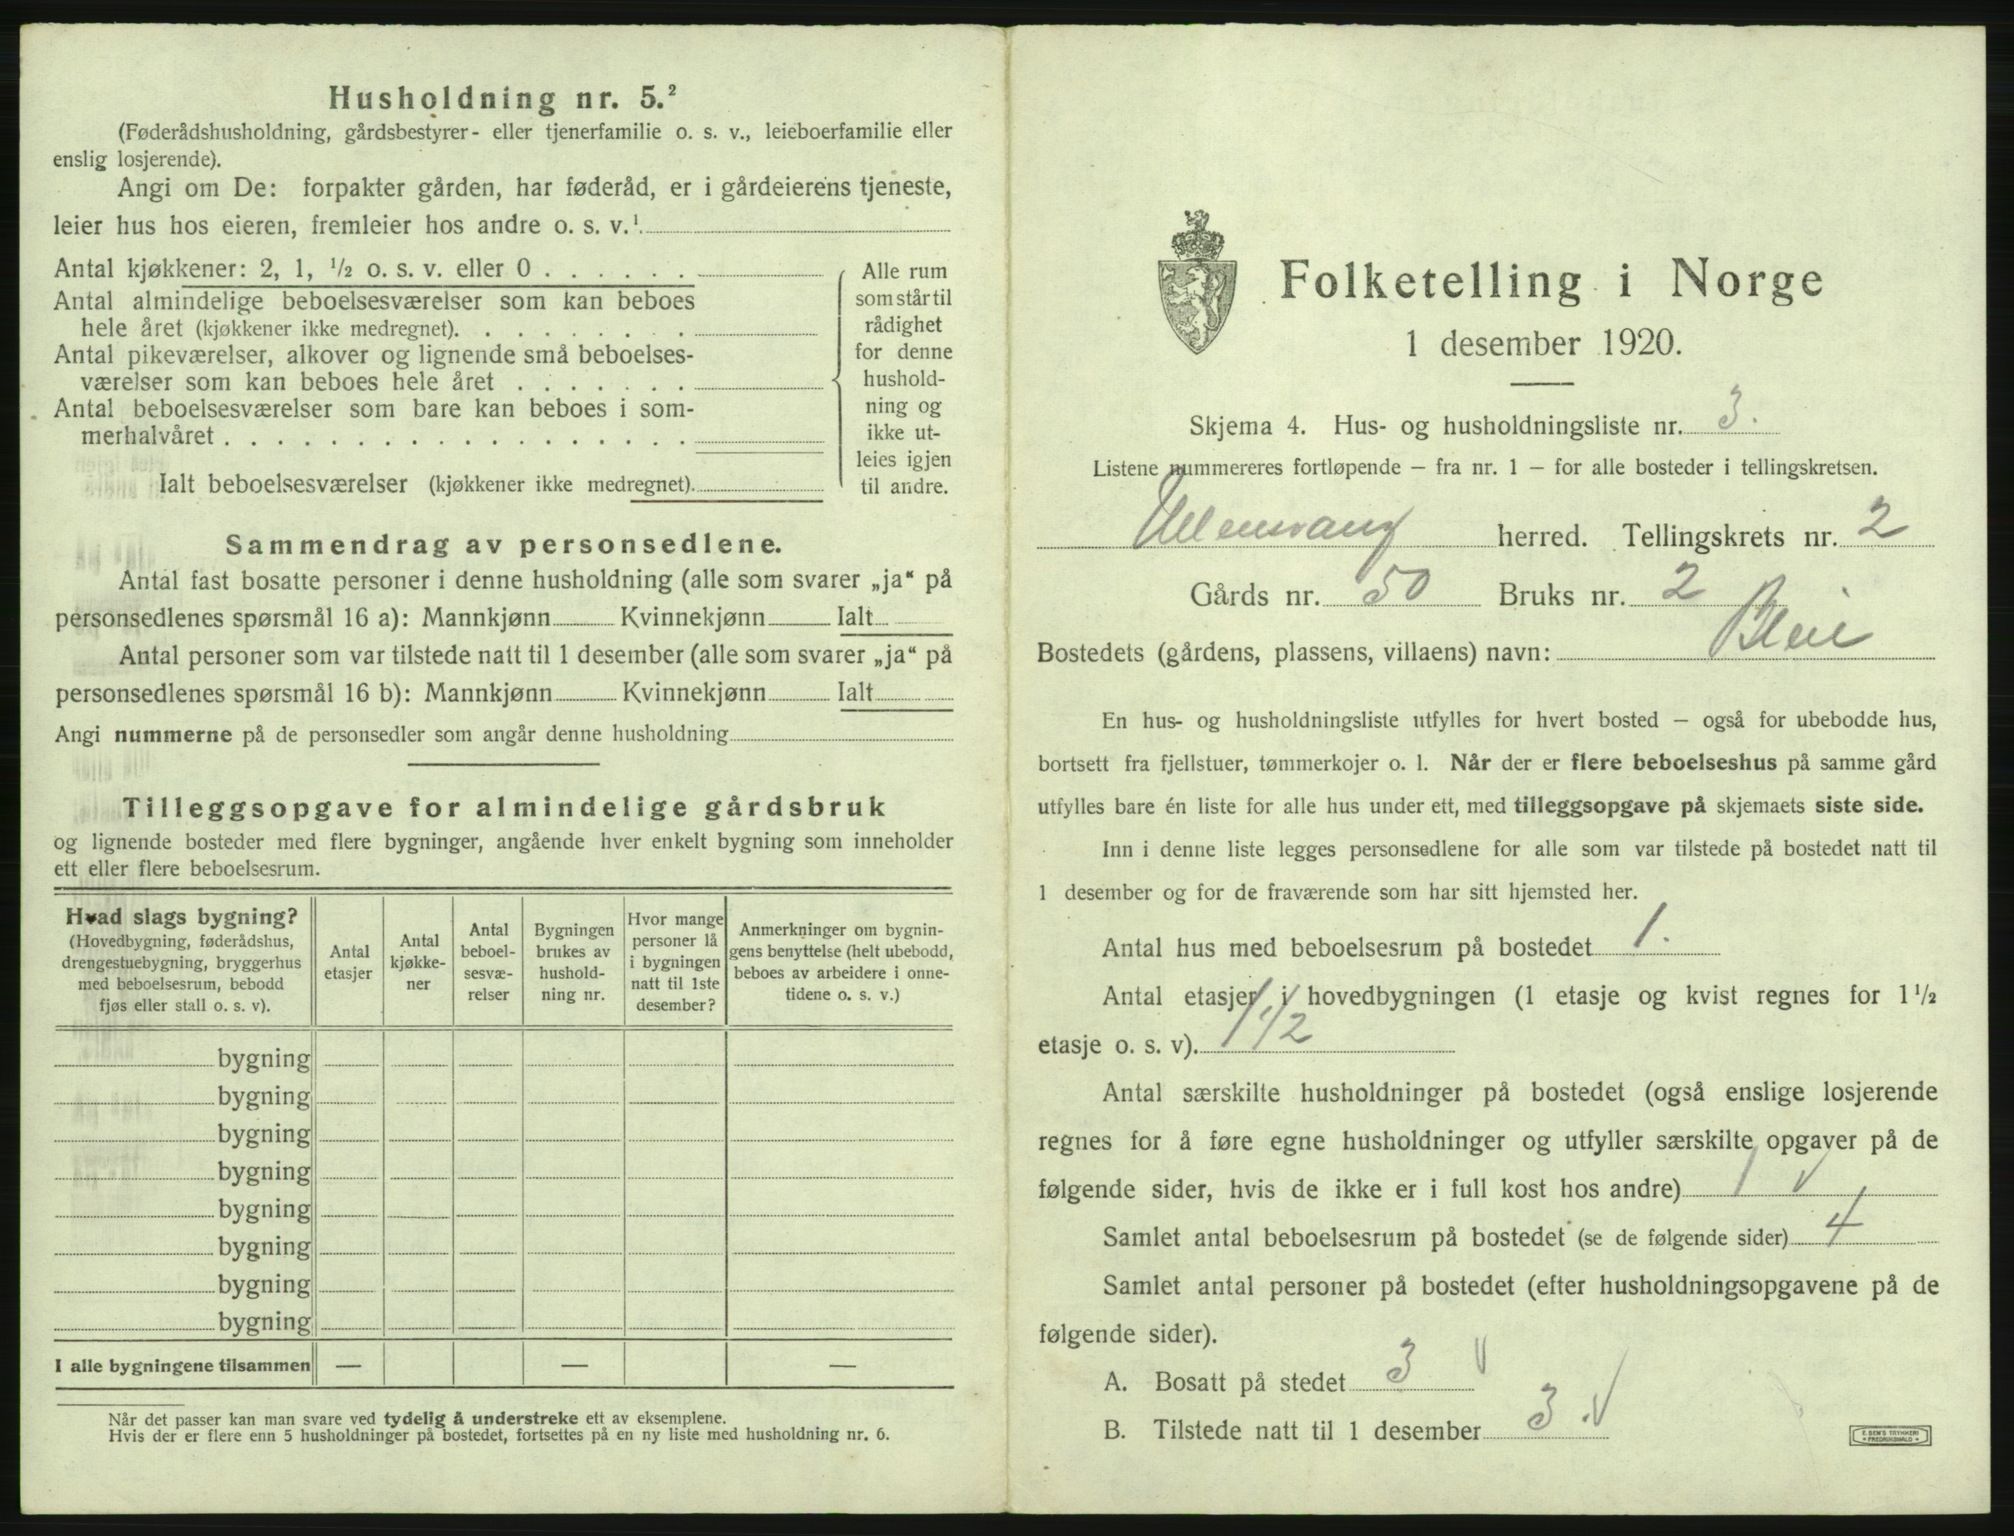 Husholdning nr. 5.²
(Føderådshusholdning, gårdsbestyrer- eller tjenerfamilie o. s. v., leieboerfamilie eller
enslig losjerende).
Angi om De: forpakter gården, har føderåd, er i gårdeierens tjeneste,
leier hus hos eieren, fremleier hos andre o. s. v.¹
Antal kjøkkener: 2, 1, ½ o. s. v. eller 0 . . . . . .
Antal almindelige beboelsesværelser som kan beboes
hele året (kjøkkener ikke medregnet). . . . . . . . .
Antal pikeværelser, alkover og lignende små beboelses-
værelser som kan beboes hele året . . . . . . .
Antal beboelsesværelser som bare kan beboes i som-
merhalvåret . . . . . . . . . . . . . . . . . .
Ialt beboelsesværelser (kjøkkener ikke medregnet).
Alle rum
som står til
rådighet
for denne
hushold-
ning og
ikke ut-
leies igjen
til andre.
Sammendrag av personsedlene.
Antal fast bosatte personer i denne husholdning (alle som svarer „ja“ på
personsedlenes spørsmål 16 a): Mannkjønn Kvinnekjønn Ialt
Antal personer som var tilstede natt til 1 desember (alle som svarer „ja“ på
personsedlenes spørsmål 16 b): Mannkjønn Kvinnekjønn Ialt
Angi nummerne på de personsedler som angår denne husholdning
Tilleggsopgave for almindelige gårdsbruk
og lignende bosteder med flere bygninger, angående hver enkelt bygning som inneholder
ett eller flere beboelsesrum.
Hvad slags bygning?
(Hovedbygning, føderådshus,
drengestuebygning, bryggerhus
med beboelsesrum, bebodd
fjøs eller stall o. s. v).
Antal
etasjer
Antal
kjøkke-
ner
Antal
beboel-
sesvæ-
relser
Bygningen
brukes av
hushold-
ning nr.
Hvor mange
personer lå
i bygningen
natt til 1ste
desember?
Anmerkninger om bygnin-
gens benyttelse (helt ubebodd,
beboes av arbeidere i onne-
tidene o. s. v.)
bygning
bygning
bygning
bygning
bygning
bygning
bygning
bygning
I alle bygningene tilsammen — — —
Når det passer kan man svare ved tydelig å understreke ett av eksemplene.
Hvis der er flere enn 5 husholdninger på bostedet, fortsettes på en ny liste med husholdning nr. 6.
Folketelling i Norge
1 desember 1920.
Skjema 4. Hus- og husholdningsliste nr. 3.
Listene nummereres fortløpende – fra nr. 1 – for alle bosteder i tellingskretsen.
Ullensvang herred. Tellingskrets nr. 2
Gårds nr. 50 Bruks nr. 2
Bostedets (gårdens, plassens, villaens) navn: Bleie
En hus- og husholdningsliste utfylles for hvert bosted – også for ubebodde hus,
bortsett fra fjellstuer, tømmerkojer o. l. Når der er flere beboelseshus på samme gård
utfylles bare én liste for alle hus under ett, med tilleggsopgave på skjemaets siste side.
Inn i denne liste legges personsedlene for alle som var tilstede på bostedet natt til
1 desember og for de fraværende som har sitt hjemsted her.
Antal hus med beboelsesrum på bostedet 1.
Antal etasjer i hovedbygningen (1 etasje og kvist regnes for 1½
etasje o. s. v). 1 1/2
Antal særskilte husholdninger på bostedet (også enslige losjerende
regnes for å føre egne husholdninger og utfyller særskilte opgaver på de
følgende sider, hvis de ikke er i full kost hos andre) 1 √
Samlet antal beboelsesrum på bostedet (se de følgende sider) 4
Samlet antal personer på bostedet (efter husholdningsopgavene på de
følgende sider).
A. Bosatt på stedet 3 √
B. Tilstede natt til 1 desember 3. √
E. SEM'S TRYKKERI
• FREDRIKSHALD •